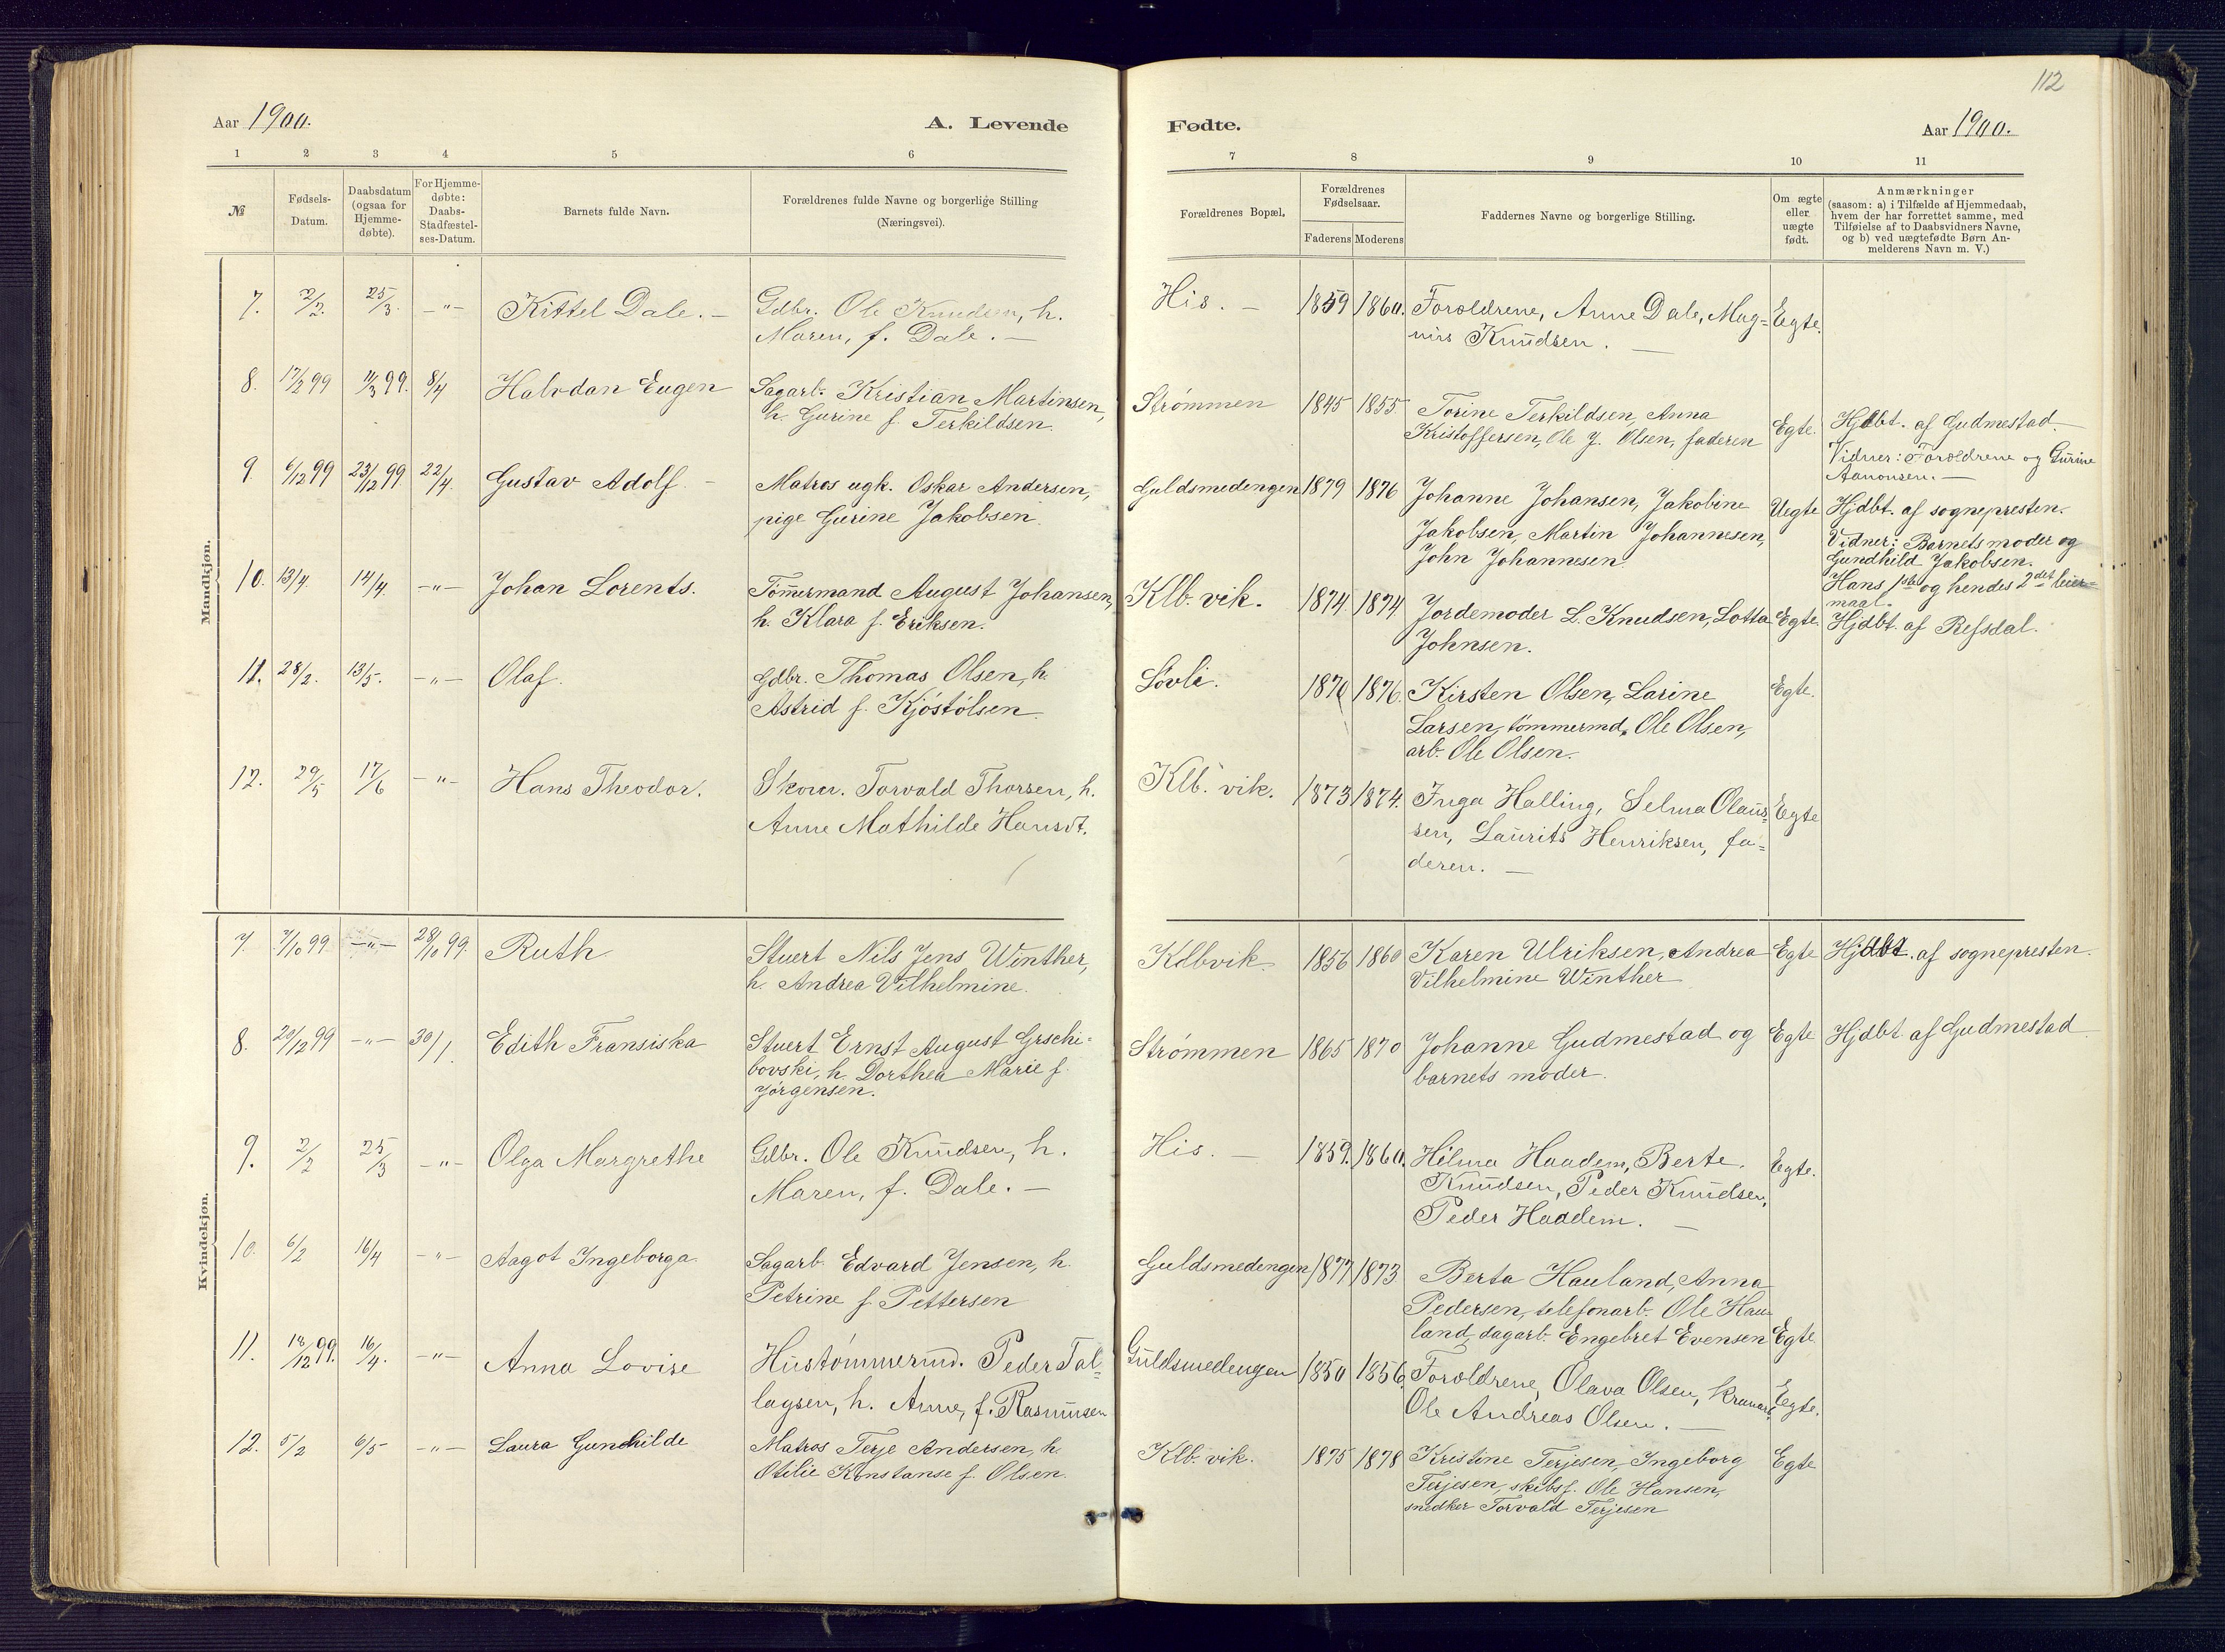 112
Aar 1900.
A. Levende
Fødte.
Aar 1900.
1 2 3 4 5 6 7 8 9 10 11
№
Fødsels-
Datum.
Daabsdatum
(ogsaa for
Hjemme-
døbte).
For Hjemme-
døbte:
Daabs-
Stadfæstel-
ses-Datum.
Barnets fulde Navn.
Forældrenes fulde Navne og borgerlige Stilling
(Næringsvei).
Forældrenes Bopæl.
Forældrenes
Fødselsaar.
Faderens Moderens
Faddernes Navne og borgerlige Stilling.
Om ægte
eller
uægte
født.
Anmærkninger
(saasom: a) i Tilfælde af Hjemmedaab,
hvem der har forrettet samme, med
Tilføielse af to Daabsvidners Navne,
og b) ved uægtefødte Børn An-
melderens Navn m. V.)
Mandkjøn.
7. 2/2. 25/3. —"— Kittel Dale. — Gdbr. Ole Knudsen, h. His. — 1859 1860. Forældrene, Anne Dale, Mag= Egte.
Maren, f. Dale. — nus Knudsen. —
8. 17/2 99 11/3 99. 8/4 Halvdan Eugen Sagarb. Kristian Martinsen, Strømmen 1845 1855 Torine Terkildsen, Anna Egte. Hjdbt. af Gudmestad.
h. Gurine f. Terkildsen. Kristoffersen, Ole J. Olsen, faderen Vidner: Forældrene og Gurine
Aanonsen. —
9. 6/12 99 23/12 99 22/4. Gustav Adolf. — Matros ugk. Oskar Andersen, Guldsmedengen 1879 1876 Johanne Johansen, Jakobine Uegte Hjdbt. af sognepresten.
pige Gurine Jakobsen. Jakobsen, Martin Johannesen, Vidner: Barnets moder og
John Johannesen. Gundhild Jakobsen.
Hans 1ste og hendes 2det leier=
maal.
10. 13/4. 14/4. —"— Johan Lorents. Tømmermand August Johansen, Klb. vik. 1874. 1874 Jordemoder L. Knudsen, Lotta Egte. Hjdbt. af Refsdal.
h. Klara f. Eriksen. Johnsen.
11. 28/2. 13/5. —"— Olaf. Gdbr. Thomas Olsen, h. Løvli. 1870 1876. Kirsten Olsen, Larine Egte.
Astrid f. Kjøstølsen. Larsen, tømmermd. Ole Olsen,
arb. Ole Olsen.
12. 29/5 17/6 —"— Hans Theodor. Skom. Torvald Thorsen, h. Klb. vik. 1873 1874. Inga Halling, Selma Olaus= Egte
Anne Mathilde Hansdt. sen, Laurits Henriksen, fa=
deren. —
Kvindekjøn.
7. 7/10 99 —"— 28/10 99. Ruth Stuert Nils Jens Winther, Kolbvik. 1856 1860 Karen Ulriksen, Andrea Egte Hjdbt. af sognepresten.
h. Andrea Vilhelmine. Vilhelmine Winther
8. 20/12 99 —"— 30/1. Edith Fransiska Stuert Ernst August Grschi= Strømmen 1865 1870 Johanne Gudmestad og Egte Hjdbt af Gudmestad
bovski, h. Dorthea Marie f. barnets moder.
Jørgensen.
9. 2/2 25/3 —"— Olga Margrethe Gdbr. Ole Knudsen, h. His. — 1859. 1860. Hilma Haadem, Berte Egte.
Maren, f. Dale. — Knudsen, Peder Knudsen,
Peder Haddem. —
10. 6/2 16/4 —"— Aagot Ingeborga. Sagarb. Edvard Jensen, h. Guldsmedengen 1877 1873 Berta Hauland, Anna
Petrine f. Pettersen Pedersen, telefonarb. Ole Hau=
land, dagarb. Engebret Evensen Egte
11. 18/12 99. 16/4. —"— Anna Lovise Hustømmermd. Peder Tal= Guldsmedengen 1850 1856. Forældrene, Olava Olsen, Egte.
lagsen, h. Anne, f. Rasmussen Ole Andreas Olsen. —
12. 5/2 6/5 —"— Laura Gunhilde Matros Terje Andersen, h. Klb. vik. 1875 1878 Kristine Terjesen, Ingeborg Egte
Otilie Konstanse f. Olsen. Terjesen, skibsf. Ole Hansen,
snedker Torvald Terjesen